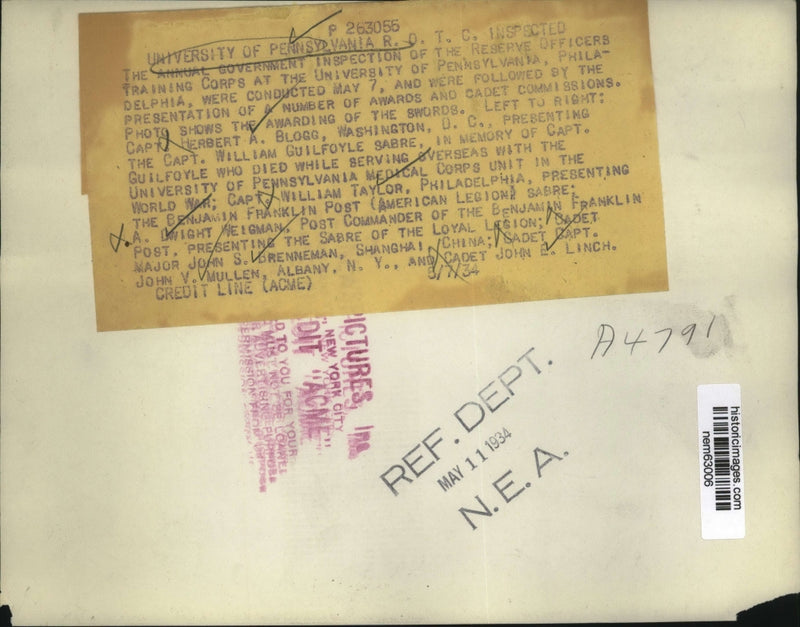 P 263055
UNIVERSITY OF PENNSYLVANIA R. O. T. C. INSPECTED
THE ANNUAL GOVERNMENT INSPECTION OF THE RESERVE OFFICERS
TRAINING CORPS AT THE UNIVERSITY OF PENNSYLVANIA, PHILA-
DELPHIA, WERE CONDUCTED MAY 7, AND WERE FOLLOWED BY THE
PRESENTATION OF A NUMBER OF AWARDS AND CADET COMMISSIONS.
PHOTO SHOWS THE AWARDING OF THE SWORDS. LEFT TO RIGHT:
CAPT. HERBERT A. BLOGG, WASHINGTON, D. C., PRESENTING
THE CAPT. WILLIAM GUILFOYLE SABRE, IN MEMORY OF CAPT.
GUILFOYLE WHO DIED WHILE SERVING OVERSEAS WITH THE
UNIVERSITY OF PENNSYLVANIA MEDICAL CORPS UNIT IN THE
WORLD WAR; CAPT. WILLIAM TAYLOR, PHILADELPHIA, PRESENTING
THE BENJAMIN FRANKLIN POST (AMERICAN LEGION) SABRE;
A. DWIGHT WEIGMAN, POST COMMANDER OF THE BENJAMIN FRANKLIN
POST, PRESENTING THE SABRE OF THE LOYAL LEGION; CADET
MAJOR JOHN S. BRENNEMAN, SHANGHAI, CHINA; CADET CAPT.
JOHN V. MULLEN, ALBANY, N. Y., AND CADET JOHN E. LINCH.
CREDIT LINE (ACME) 5/7/34
PICTURES, INC.
NEW YORK CITY
"ACME"
TO YOU FOR YOUR
A4791
REF. DEPT.
MAY 11 1934
N.E.A.
historicimages.com
nem63006